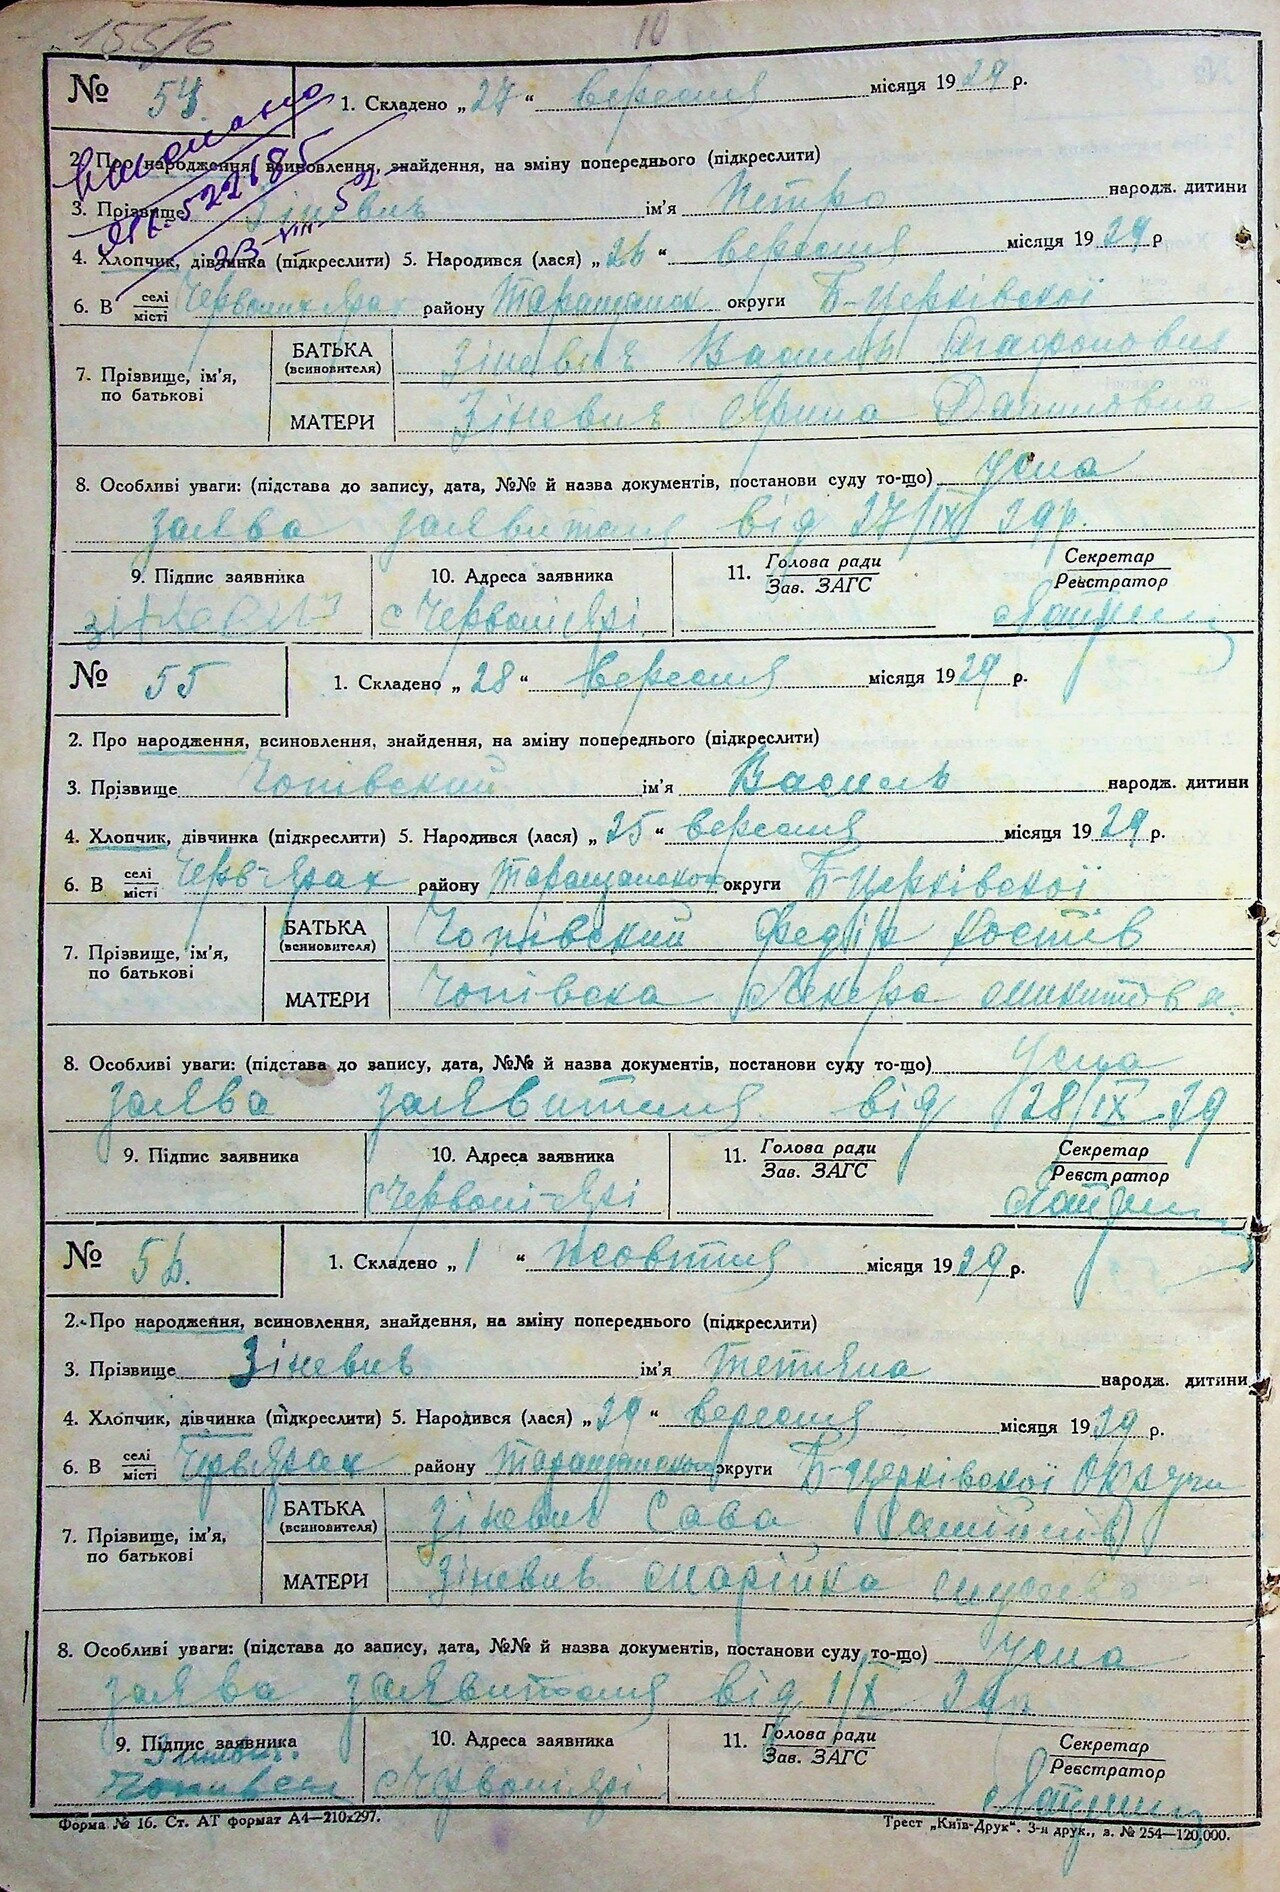 155/6
10
№ 54. 1. Складено „ 27 “ вересня місяця 19 29 р.
2. Про народження, всиновлення, знайдення, на зміну попереднього (підкреслити)
3. Прізвище Зіневич ім'я Петро народж. дитини
4. Хлопчик, дівчинка (підкреслити) 5. Народився (лася) „ 26 “ вересня місяця 19 29 р
6. В селі/місті Червоних Ярах району Таращанськ округи Б-Церківської
7. Прізвище, ім'я, по батькові
БАТЬКА (всиновителя) Зіневич Василь Агафонович
МАТЕРИ Зіневич Ярина Даниловна
8. Особливі уваги: (підстава до запису, дата, №№ й назва документів, постанови суду то-що) Усна
заява заявителя від 27/IX 29р.
9. Підпис заявника 10. Адреса заявника 11. Голова ради / Зав. ЗАГС Секретар / Реєстратор
Зіневич с Червоні Ярі
№ 55 1. Складено „ 28 “ вересня місяця 19 29 р.
2. Про народження, всиновлення, знайдення, на зміну попереднього (підкреслити)
3. Прізвище Чопівский ім'я Василь народж. дитини
4. Хлопчик, дівчинка (підкреслити) 5. Народився (лася) „ 25 “ вересня місяця 19 29 р.
6. В селі/місті Черв-Ярах району Таращанского округи Б-Церківської
7. Прізвище, ім'я, по батькові
БАТЬКА (всиновителя) Чопівский Федір Костів
МАТЕРИ Чопівска Микитов
8. Особливі уваги: (підстава до запису, дата, №№ й назва документів, постанови суду то-що) Усна
заява заявителя від 28/IX 29
9. Підпис заявника 10. Адреса заявника 11. Голова ради / Зав. ЗАГС Секретар / Реєстратор
с Червоні-Ярі
№ 56. 1. Складено „ 1 “ жовтня місяця 19 29 р.
2. Про народження, всиновлення, знайдення, на зміну попереднього (підкреслити)
3. Прізвище Зіневич ім'я Тетяна народж. дитини
4. Хлопчик, дівчинка (підкреслити) 5. Народився (лася) „ 29 “ вересня місяця 19 29 р.
6. В селі/місті Черв Ярах району Таращанского округи Б-Церківської округи
7. Прізвище, ім'я, по батькові
БАТЬКА (всиновителя) Зіневич Сава
МАТЕРИ Зіневич Марійка
8. Особливі уваги: (підстава до запису, дата, №№ й назва документів, постанови суду то-що) Усна
заява заявителя від 1/X 29р
9. Підпис заявника 10. Адреса заявника 11. Голова ради / Зав. ЗАГС Секретар / Реєстратор
с Червоні Ярі
Форма № 16. Ст. АТ формат А4—210x297. Трест „Київ-Друк“. 3-я друк., з. № 254—120,000.